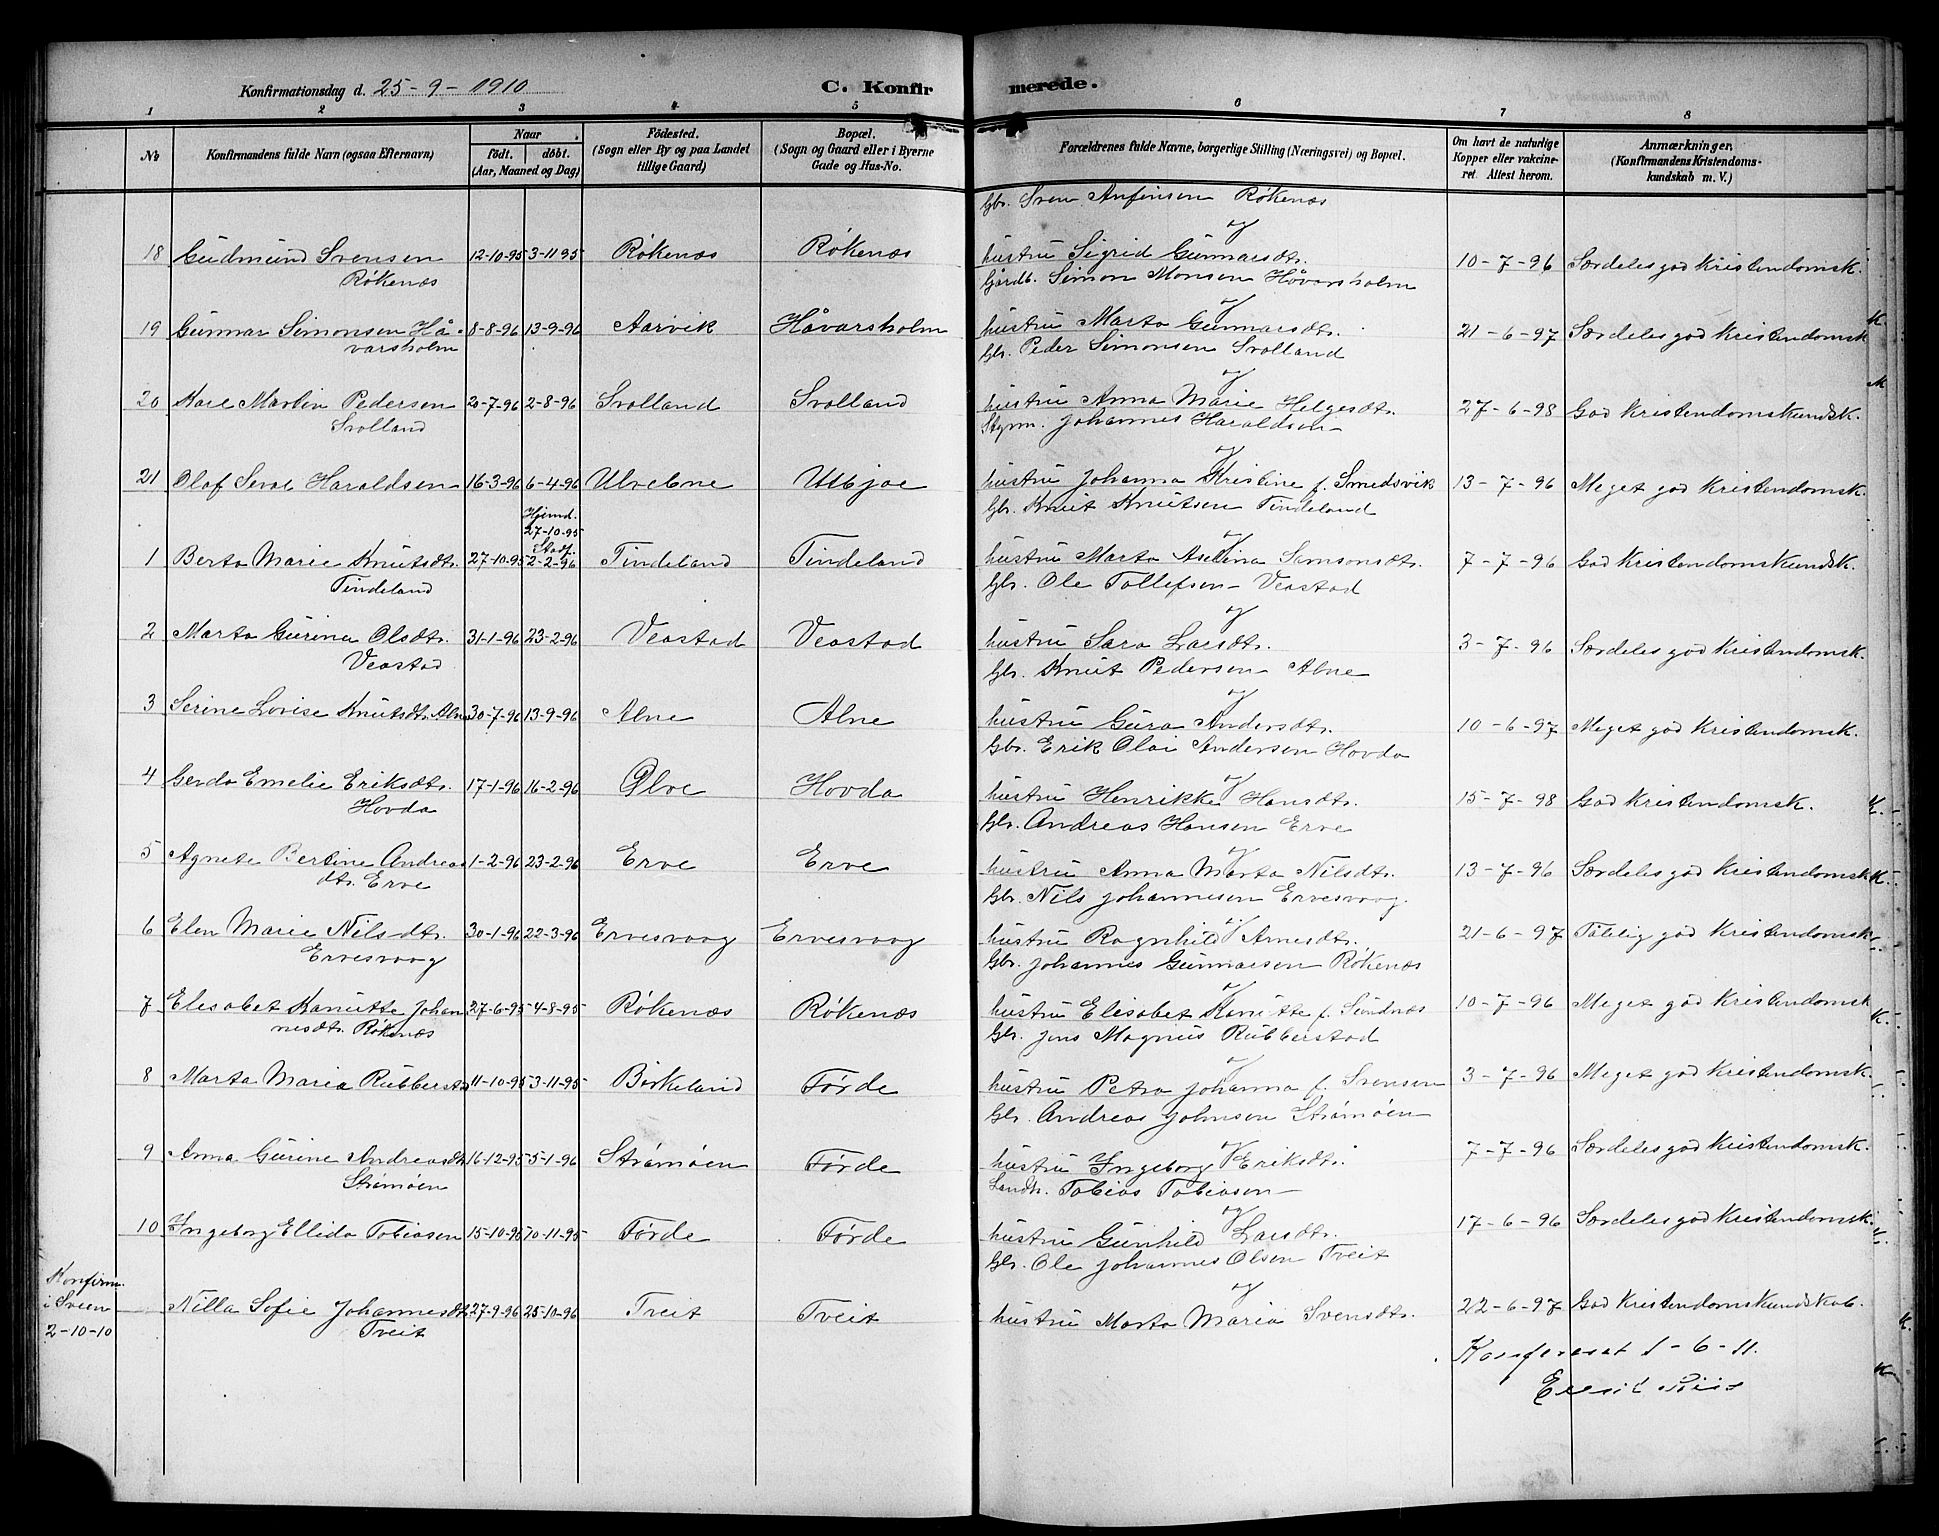 Konfirmationsdag d. 25-9-1910 C. Konfirmerede.
1 2 3 4 5 6 7 8
No Konfirmandens fulde Navn (ogsaa Efternavn) Naar födt. döbt. (Aar, Maaned og Dag) Födested. (Sogn eller By og paa Landet tillige Gaard) Bopæl. (Sogn og Gaard eller i Byerne Gade og Hus-No. Forældrenes fulde Navne, borgerlige Stilling (Næringsvei) og Bopæl. Om havt de naturlige Kopper eller vakcineret. Attest herom. Anmærkninger. (Konfirmandens Kristendomskundskab m. V.)
Gbr. Sven Anfinsen Røkenæs
og
18 Gudmund Svensen 12-10-95 3-11-95 Røkenæs Røkenæs hustru Sigrid Gunnarsdtr. 10-7-96 Særdeles god Kristendomsk.
Røkenæs
Gårdb. Simon Monsen Håvarsholm
og
19 Gunnar Simonsen Hå- 8-8-96 13-9-96 Aarvik Håvarsholm hustru Marta Gunnarsdtr. 21-6-97 Særdeles god Kristendomsk
varsholm
Gbr. Peder Simonsen Svolland
og
20 Kare Martin Pedersen 20-7-96 2-8-96 Svolland Svolland hustru Anna Marie Helgesdtr. 27-6-98 God Kristendomskundsk.
Svolland
Styrm. Johannes Haraldsen
og
21 Olaf Haraldsen 16-3-96 6-4-96 Ulvebne Utbjoe hustru Johanna Kristine f. Smedsvik 13-7-96 Meget god Kristendomsk.
Gbr. Knut Knutsen Tindeland
og
Hjemd.
27-10-95
Stadf.
1 Berta Marie Knutsdtr. 27-10-95 2-2-96 Tindeland Tindeland hustru Marta Aselina Samsonsdtr. 7-7-96 God Kristendomskundsk.
Tindeland
Gbr. Ole Tollefsen Veastad
og
2 Marta Gurina Olsdtr. 31-1-96 23-2-96 Veastad Veastad hustru Sara Larsdtr. 3-7-96 Særdeles god Kristendomsk.
Veastad
Gbr. Knut Pedersen Alne
og
3 Serine Lovise Knutsdtr. Alne 30-7-96 13-9-96 Alne Alne hustru Gura Andersdtr. 10-6-97 Meget god Kristendomsk.
Gbr. Erik Olai Andersen Hovda
og
4 Gerda Emelie Eriksdtr. 17-1-96 16-2-96 Ølve Hovda hustru Henrikke Hansdtr. 15-7-98 God Kristendomsk.
Hovda
Gbr. Andreas Hansen Erve
og
5 Agnete Bertine Andreas 1-2-96 23-2-96 Erve Erve hustru Anna Marta Nilsdtr. 13-7-96 Særdeles god Kristendomsk
dtr. Erve
Gbr. Nils Johannesen Ervesvaag
og
6 Elen Marie Nilsdtr. 30-1-96 22-3-96 Ervesvaag Ervesvaag hustru Ragnhild Arnesdtr. 21-6-97 Tålelig god Kristendomsk
Ervesvaag
Gbr. Johannes Gunnarsen Røkenæs
og
7 Elisabet Kanutte Johan 27-6-95 4-8-95 Røkenæs Røkenæs hustru Elisabet Kanutte f. Sundnæs 10-7-96 Meget god Kristendomsk
nesdtr. Røkenæs
Gbr. Jens Magnus Rubberstad
og
8 Marta Maria Rubbersta 11-10-95 3-11-95 Birkeland Førde hustru Petra Johanna f. Svensen 3-7-96 Meget god Kristendomsk.
Gbr. Andreas Johnsen Strømøen
og
9 Anna Gurine Andreasdt. 16-12-95 5-1-96 Strømøen Førde hustru Ingeborg Eriksdtr. 7-7-96 Særdeles god Kristendomsk.
Strømøen
Landh. Tobias Tobiasen
og
10 Ingeborg Ellida Tobiasen 15-10-95 10-11-95 Førde Førde hustru Gunhild Larsdtr. 17-6-96 Særdeles god Kristendomsk.
Gbr. Ole Johannes Olsen Tveit
og
Konfirm.
i Sveen
2-10-10
Nilla Sofie Johannesdt. 27-9-96 25-10-96 Tveit Tveit hustru Marta Maria Svensdtr. 22-6-97 God Kristendomskundskab.
Tveit
Konfereret 1-6-11.